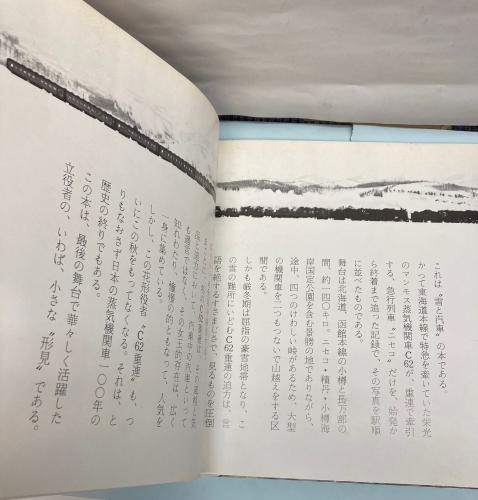 これは〝雪と汽車〟の本である。
かつて東海道本線で特急を牽いていた栄光
のマンモス蒸気機関車C62が、重連で牽引
する、急行列車〝ニセコ〟だけを、始発か
ら終着まで追った記録で、その写真を駅順
に並べたものである。
舞台は北海道、函館本線の小樽と長万部の
間、約一四〇キロ。ニセコ・積丹・小樽海
岸国定公園を含む景勝の地でありながら、
途中、四つのけわしい峠があるため、大型
の機関車を二つもつないで山越えをする区
間である。
しかも厳冬期は屈指の豪雪地帯となり、こ
の雪の難所にいどむC62重連の迫力は、言
語を絶するすさまじさで、見るものを圧倒
も過言ではない。その女王的存在は、広く
知れわたり、憧憬の的ともなって、人気を
一身に集めている。
しかし、この花形役者〝C62重連〟も、つ
いにこの秋をもってなくなる。それは、と
りもなおさず日本の蒸気機関車一〇〇年の
歴史の終りでもある。
この本は、最後の舞台で華々しく活躍した
立役者の、いわば、小さな〝形見〟である。